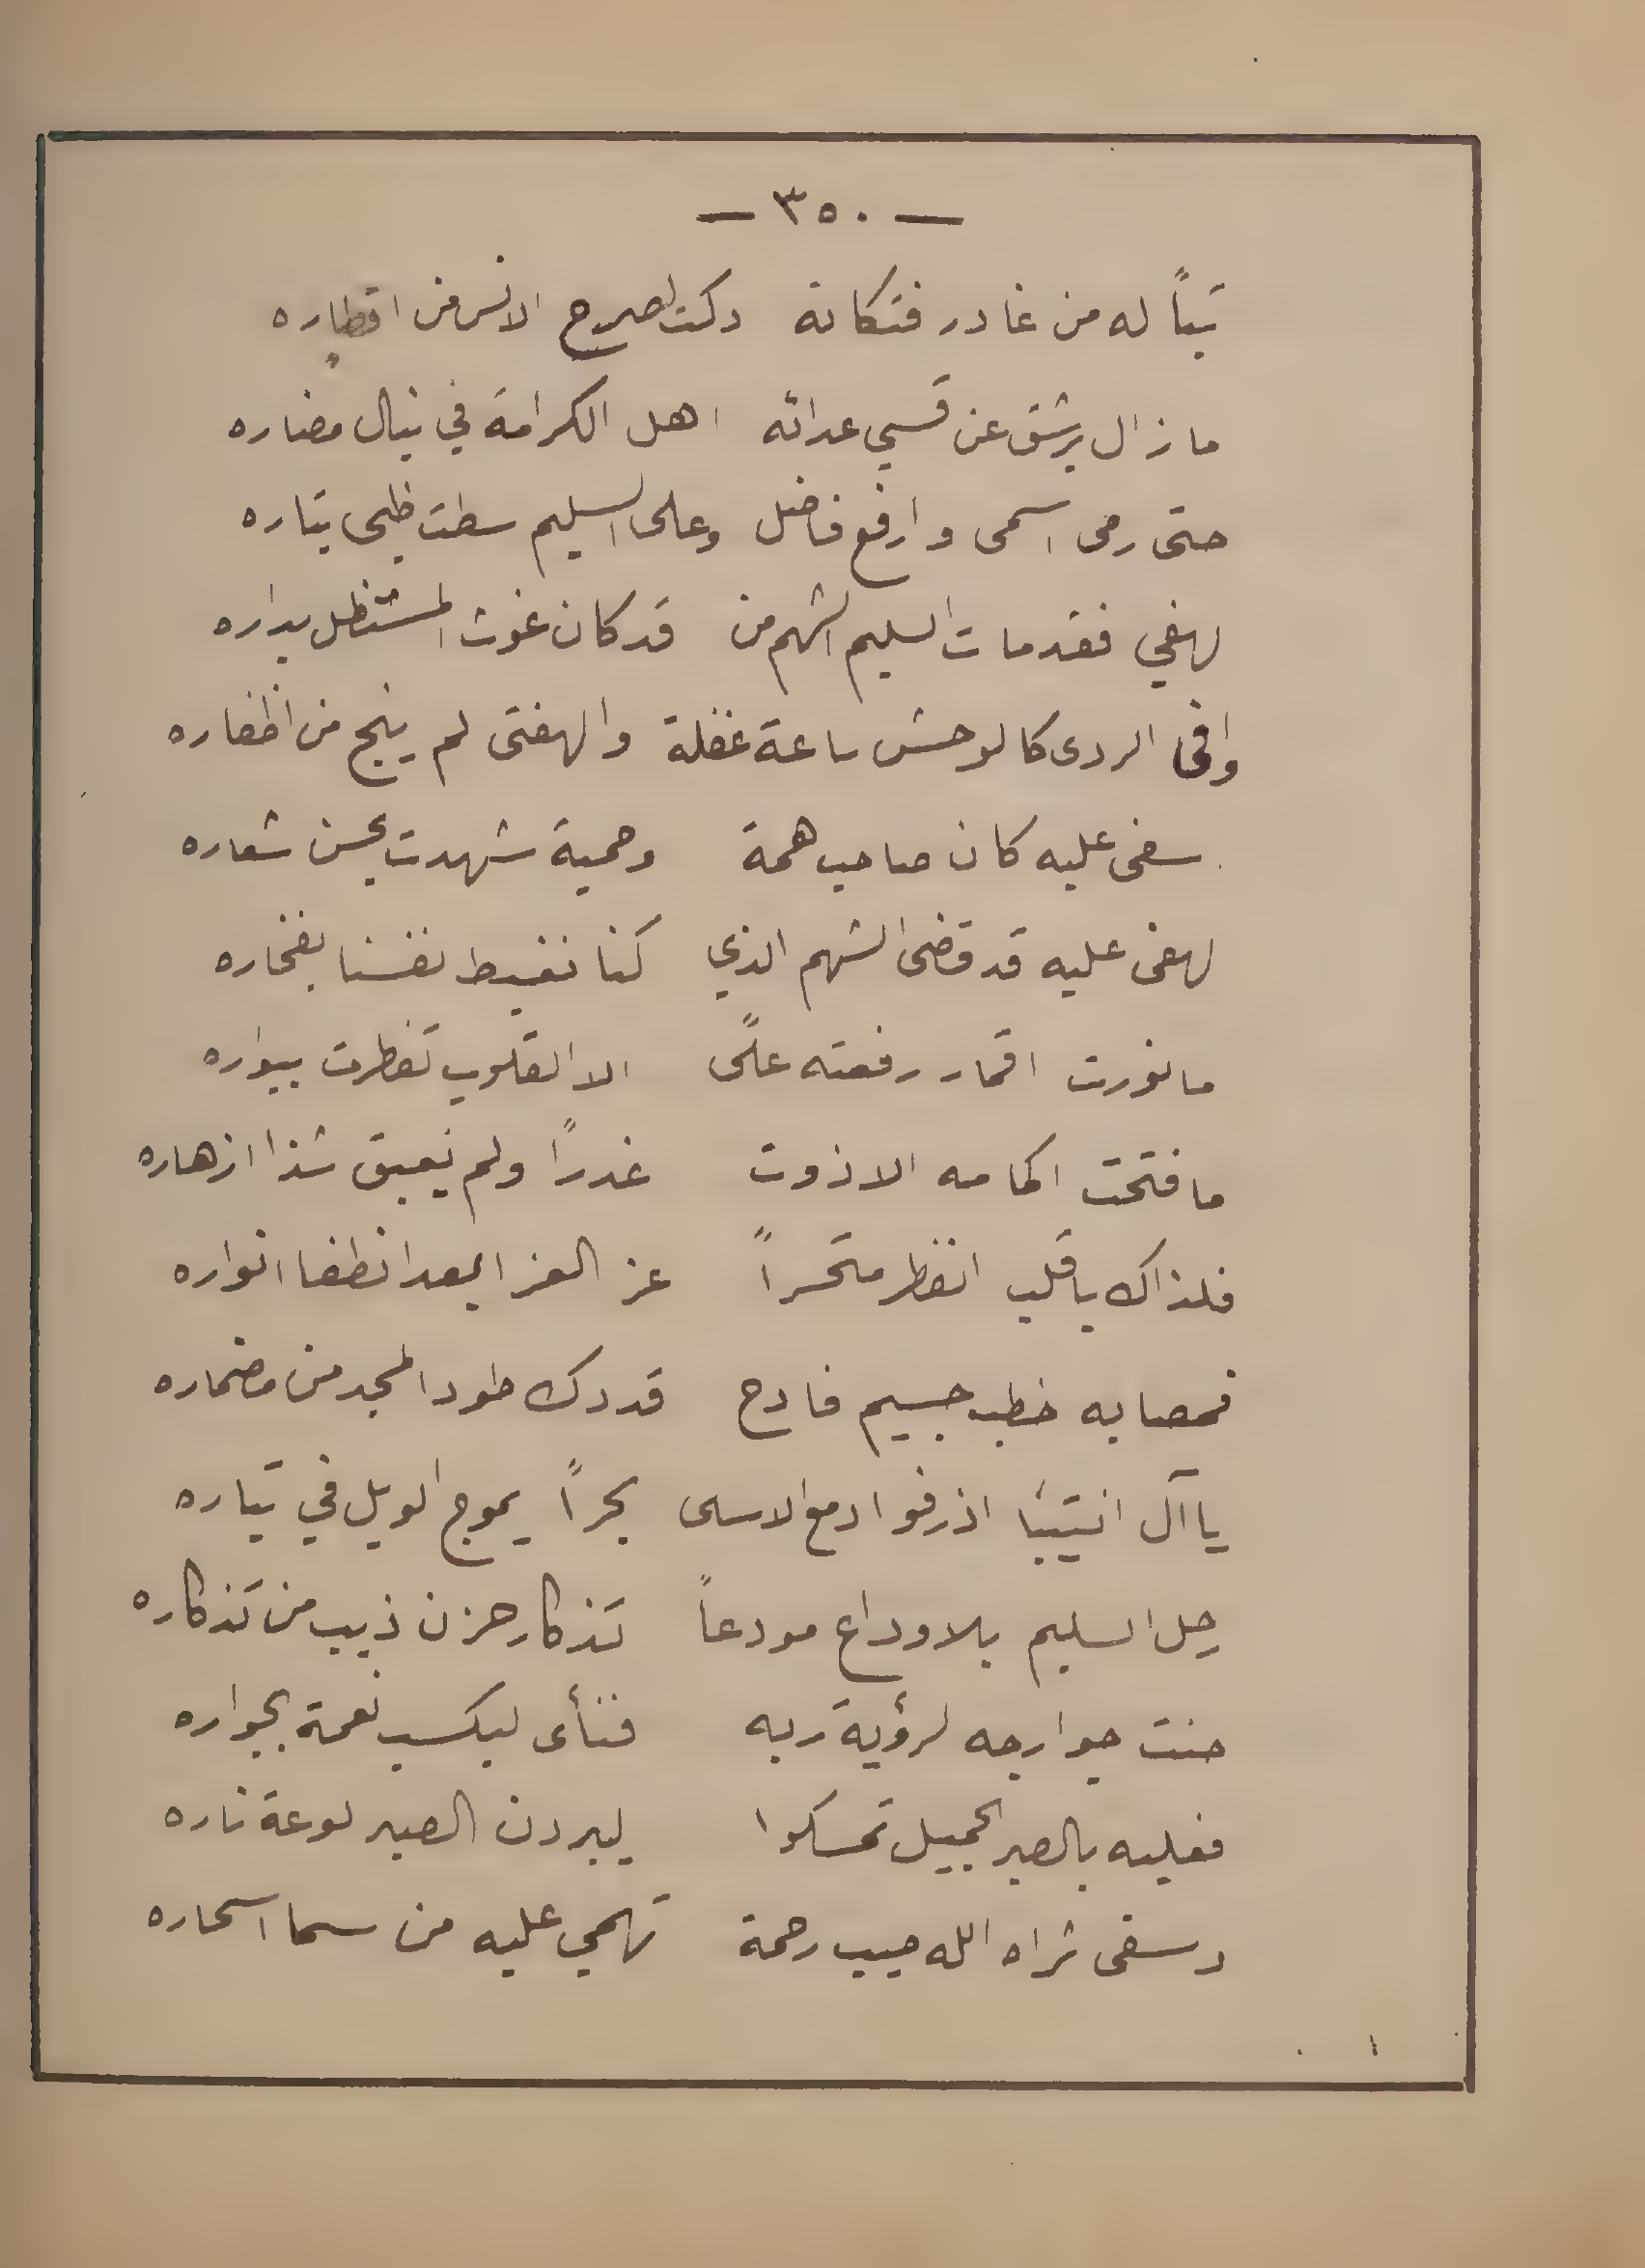 — ٣٥٠ —
تباً له من غادر فتكاته دكت لصرح الانس من اقطاره
ما زال يرشق عن قسي عداته اهل الكرامة في نبال مضاره
حتى رمى اسمى وارفع فاضل وعلى السليم سطت ظبى بتاره
لهفي فقد مات السليم الشهم من قد كان غوث المستظل بداره
وافى الردى كالوحش ساعة غفلة والهفتى لم ينج من اظفاره
سفى عليه كان صاحب همة وحمية شهدت بحسن شعاره
لهفى عليه قد قضى الشهم الذي كنا نغبط نفسنا بفخاره
ما نورت اقمار رفعته علًى الا القلوب تفطرت ببواره
ما فتحت اكمامه الا ذوت غدرًا ولم يعبق شذا ازهاره
فلذاك يا قلب انفطر متحسراً عز العزا بعد انطفا انواره
فمصابه خطب جسيم فادح قد دك طود المجد من مضماره
يا آل انتيبا اذرفوا دمع الاسى بحراً يموج الويل في تياره
رحل السليم بلا وداع مودعاً تذكار حزن ذيب من تذكاره
حنت جوارحه لرؤية ربه فنأى ليكسب نعمة بجواره
فعليه بالصبر الجميل تمسكوا ليبردن الصبر لوعة ناره
وسقى ثراه الله صيب رحمة تهمي عليه من سما اسحاره